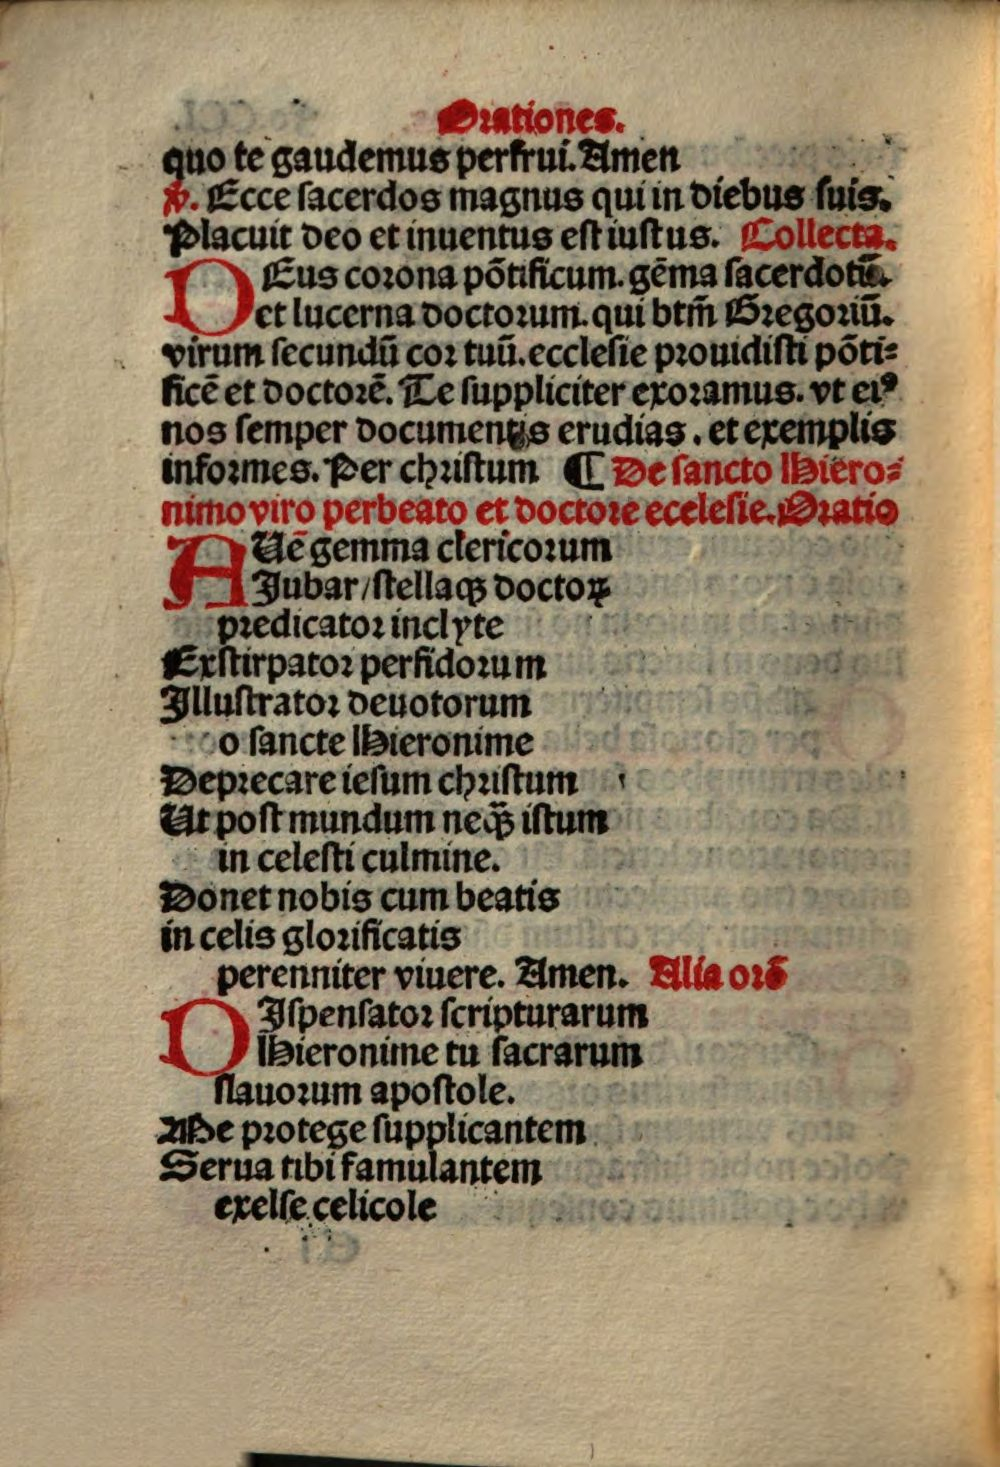 Orationes.
quo te gaudemus perfrui. Amen
℣. Ecce ſacerdos magnus qui in diebus ſuis.
Placuit deo et inuentus eſt iuſtus. Collecta.
DEus corona põtificum. gẽma ſacerdotũ.
et lucerna doctorum. qui btm̃ Gregoriũ.
virum ſecundũ cor tuũ. eccleſie prouidiſti põti⸗
ficẽ et doctorẽ. Te ſuppliciter exoramus. vt eiꝰ
nos ſemper documentis erudias. et exemplis
informes. Per chriſtum ¶ De ſancto Hiero⸗
nimo viro perbeato et doctore eceleſie. Oratio
AUẽ gemma clericorum
Jubar / ſtellaqꝫ doctoꝝ
predicator inclyte
Exſtirpator perfidorum
Illuſtrator deuotorum
o ſancte Hieronime
Deprecare ieſum chriſtum
Ut poſt mundum neqꝫ̃ iſtum
in celeſti culmine.
Donet nobis cum beatis
in celis glorificatis
perenniter viuere. Amen. Alia orõ
DIſpenſator ſcripturarum
Hieronime tu ſacrarum
ſlauorum apoſtole.
Me protege ſupplicantem
Serua tibi famulantem
exelſe celicole